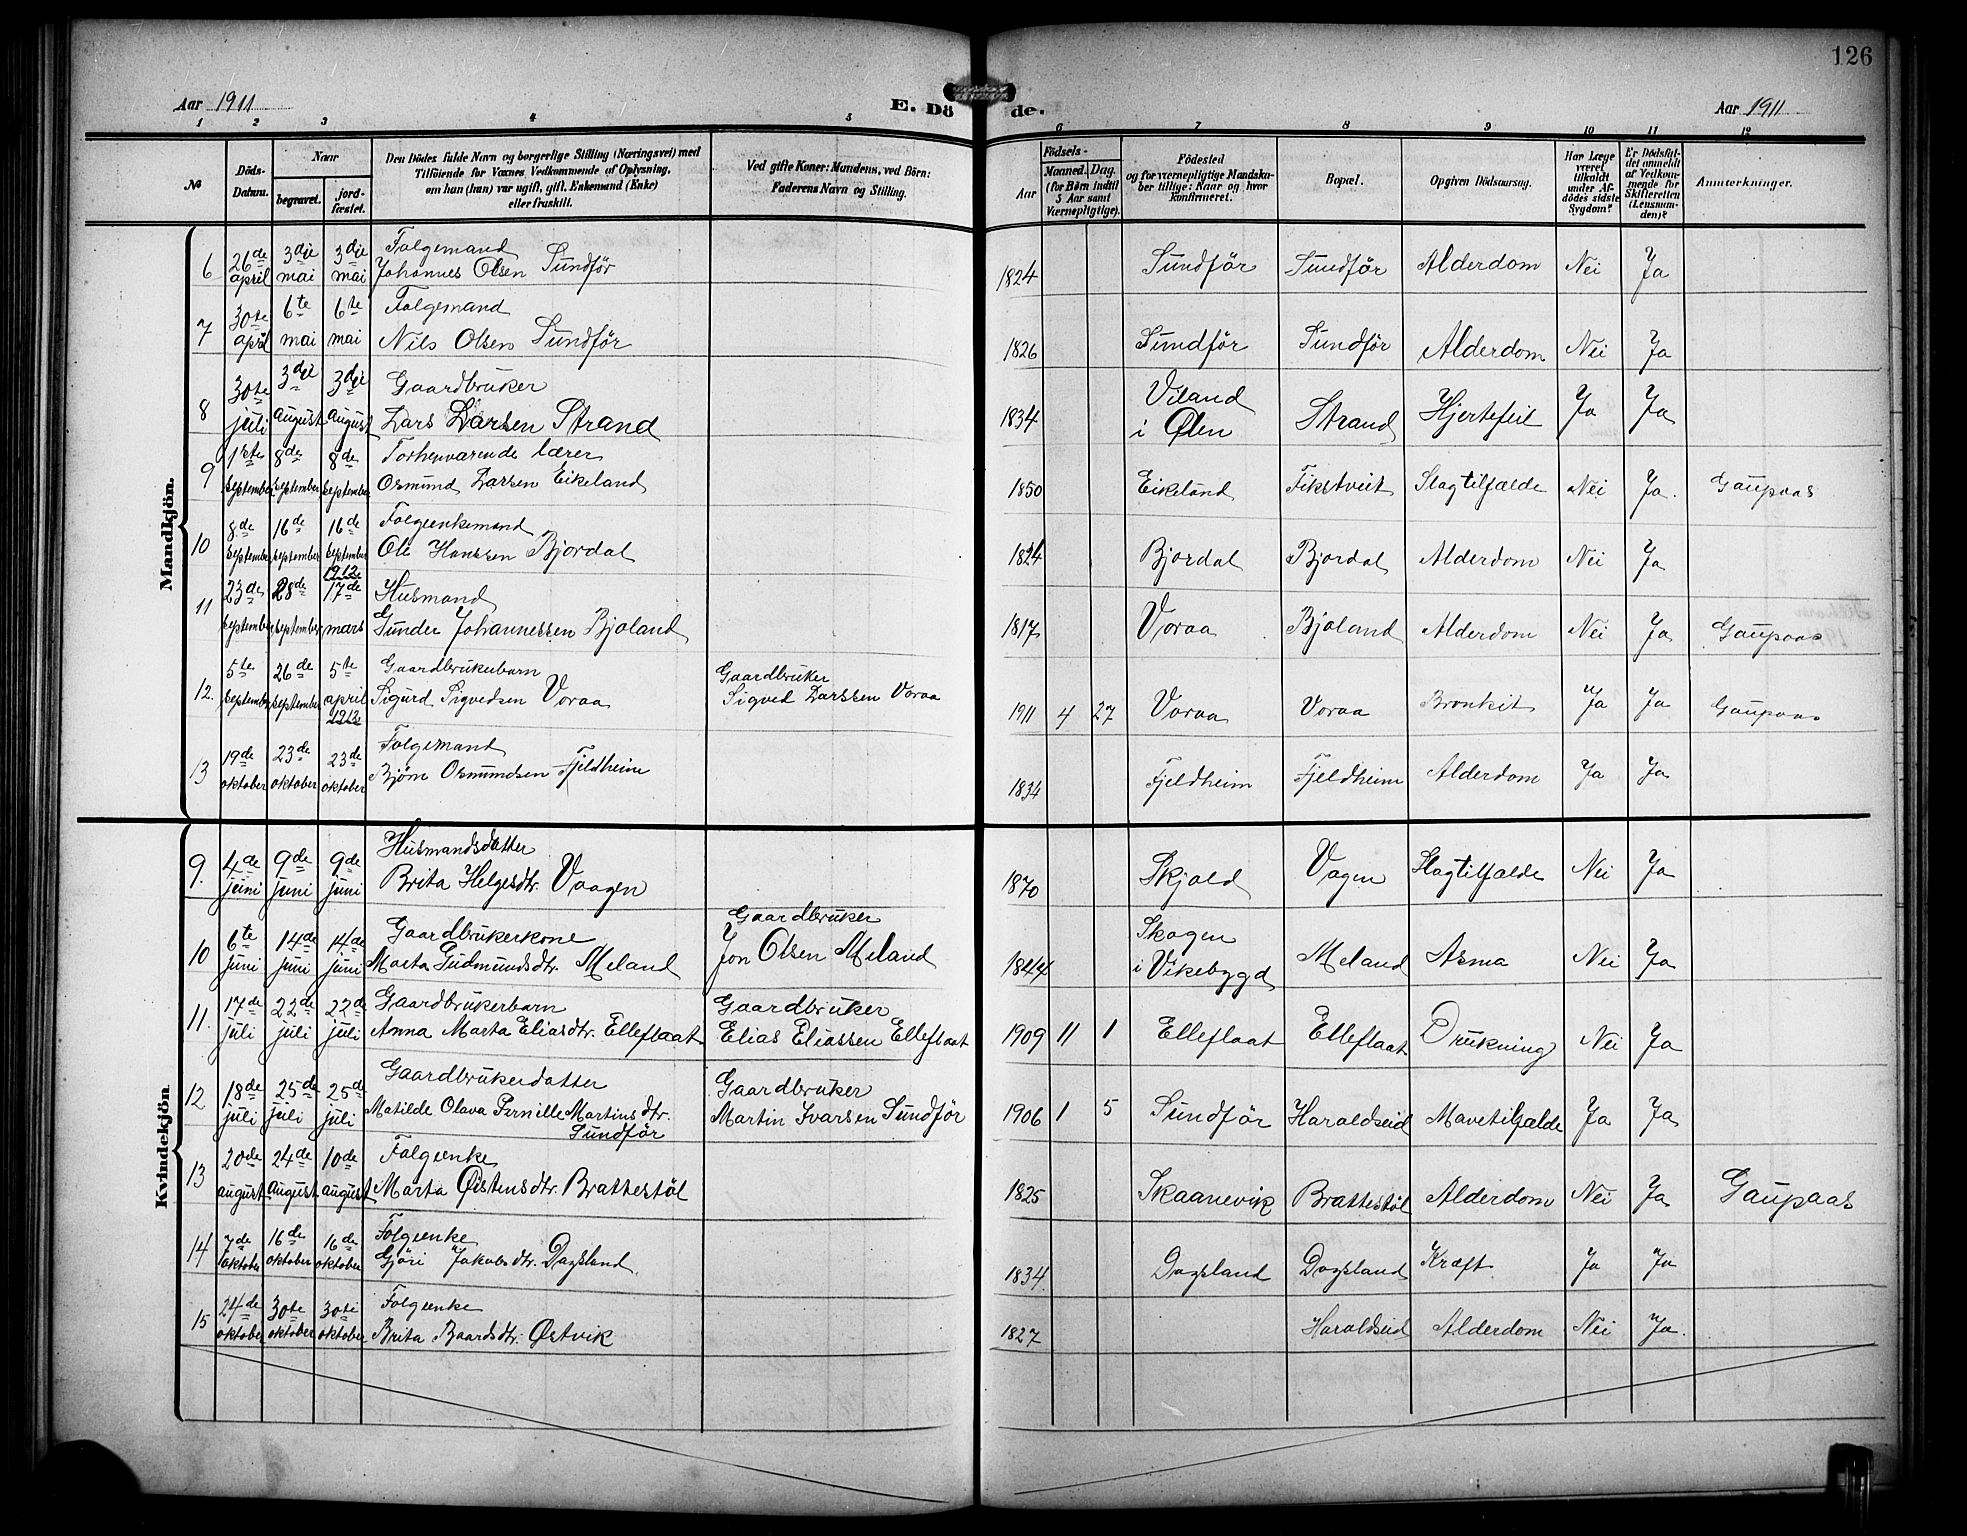 126
Aar 1911
E. Dö de.
Aar 1911
1 2 3 3 4 5 6 7 8 9 10 11 12
No
Döds-Datum.
Naar
begravet.
jord-fæstet.
Den Dödes fulde Navn og borgerlige Stilling (Næringsvei) med
Tilföiende for Voxnes Vedkommende af Oplysning,
om han (hun) var ugift, gift, Enkemand (Enke)
eller fraskilt.
Ved gifte Koner: Mandens, ved Börn:
Faderens Navn og Stilling.
Födsels-
Aar
Maaned. Dag.
(for Börn indtil
5 Aar samt
Værnepligtige).
Födested
og for værnepligtige Mandska-
ber tillige: Naar og hvor
konfirmeret.
Bopæl.
Opgiven Dödsaarsag.
Har Læge
været
tilkaldt
under Af-
dödes sidste
Sygdom?
Er Dödsfal-
det anmeldt
af Vedkom-
mende for
Skifteretten
(Lensman-
den)?
Anmerkninger.
Mandkjön.
6 26de april 3die mai 3die mai Folgemand
Johannes Olsen Sundför 1824 Sundför Sundför Alderdom Nei Ja
7 30te april 6te mai 6te mai Folgemand
Nils Olsen Sundför 1826 Sundför Sundför Alderdom Nei Ja
8 30te juli 3die august 3die august Gaardbruker
Lars Larsen Strand 1834 Viland i Ølen Strand Hjertefeil Ja Ja
9 1ste september 8de september 8de september Forhenværende lærer
Osmund Larsen Eikeland 1850 Eikeland Fikstveit Slagtilfælde Nei Ja. Gaupaas
10 8de september 16de september 16de september Folgeenkemand
Ole Hanssen Bjordal 1824 Bjordal Bjordal Alderdom Nei Ja
11 23de september 28de september 1912 17de mars Husmand
Gunder Johannessen Bjoland 1817 Voraa Bjoland Alderdom Nei Ja Gaupaas
12. 5te september 26de september 5te april 1912 Gaardbrukerbarn
Sigurd Sigvedsen Voraa Gaardbruker
Sigved Larssen Voraa 1911 4 27 Voraa Voraa Bronkit Ja Ja Gaupaas
13 19de oktober 23de oktober 23de oktober Folgemand
Bjørn Osmundsen Fjeldheim 1834 Fjeldheim Fjeldheim Alderdom Ja Ja
Kvindekjön.
9. 4de juni 9de juni 9de juni Husmandsdatter
Brita Helgesdtr. Vaagen 1870 Skjold Vagen Slagtilfælde Nei Ja
10 6te juni 14de juni 14de juni Gaardbrukerkone
Marta Gudmundsdtr. Meland Gaardbruker
Jon Olsen Meland 1844 Skogen i Vikebygd Meland Asma Nei Ja
11. 17de juli 22de juli 22de juli Gaardbrukerbarn
Anna Marta Eliasdtr. Elleflaat Gaardbruker
Elias Eliassen Elleflaat 1909 11 1 Elleflaat Elleflaat Drukning Nei Ja
12 18de juli 25de juli 25de juli Gaardbrukerdatter
Matilde Olava Pernille Martinsdtr. Sundför Gaardbruker
Martin Ivarsen Sundför 1906 1 5 Sundför Haraldseid Mavetilfælde Ja Ja
13 20de august 24de august 10de august Folgeenke
Marta Østensdtr. Brattestöl 1825 Skaanevik Brattestöl Alderdom Nei Ja Gaupaas
14 7de oktober 16de oktober 16de oktober Folgeenke
Gjöri Jakobsdtr. Dagsland 1834 Dagsland Dagsland Kræft Ja Ja
15 24de oktober 30te oktober 30te oktober Folgeenke
Brita Baardsdtr. Østvik 1827 Haraldseid Alderdom Nei Ja.